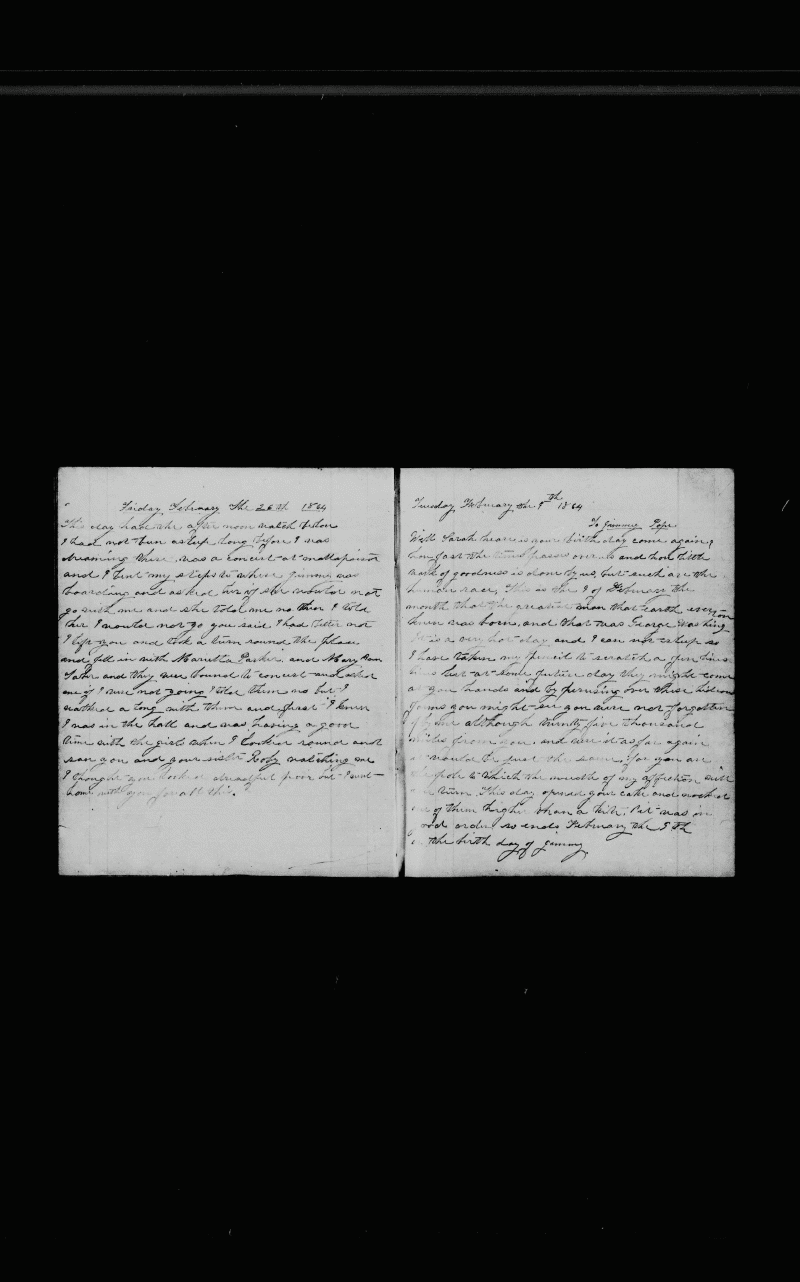 Friday February the 26th 1864
This day have the after noon watch below
I had not bun asleep long before I was
dreaming there was a concert at mattapoisett
and I bent my steps to where Jimmy was
boarding and asked her if she would not
go with me and she told me no then I told
her I would not go you said I had better not
I left you and took a turn round the place
and fell in with Maretta Parker and Mary Ann
Taber and they were bound to concert and asked
me if I was not going I told them no but I
walked a long with them and first I knew
I was in the hall and was having a good
time with the girls when I looked round and
saw you and your sister Roby watching me
I thought you looked dreadful poor but I went
home with you for all this.
Tuesday February the 9th 1864
To Jimmy Pope
Well Sarah heare is your birth day come again,
how fast the time passes over us and how little
work of goodness is done by us, but such are the
human race, This is the 9 of February the
month that the greatest man that earth ever
knew was born, and that was George Washing-ton
It is a very hot day and I can not sleep so
I have taken my pencil to scratch a few lines
that at some future day they might come
at you hands and by perusing over these
forms you might see you were not forgotten
by me although twenty five thousand
miles from you, and were it as far again
it would be just the same, for you are
the pole to which the needle of my affection will
turn. This day opened your cake and
one of them higher than a kite, But was in
good order so ends February the 9th
the birth day of Jimmy